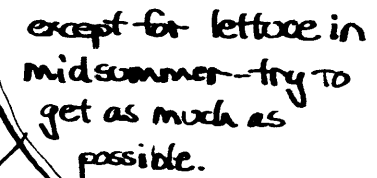 except for lettuce in
midsummer-try to
get as much as
possible.